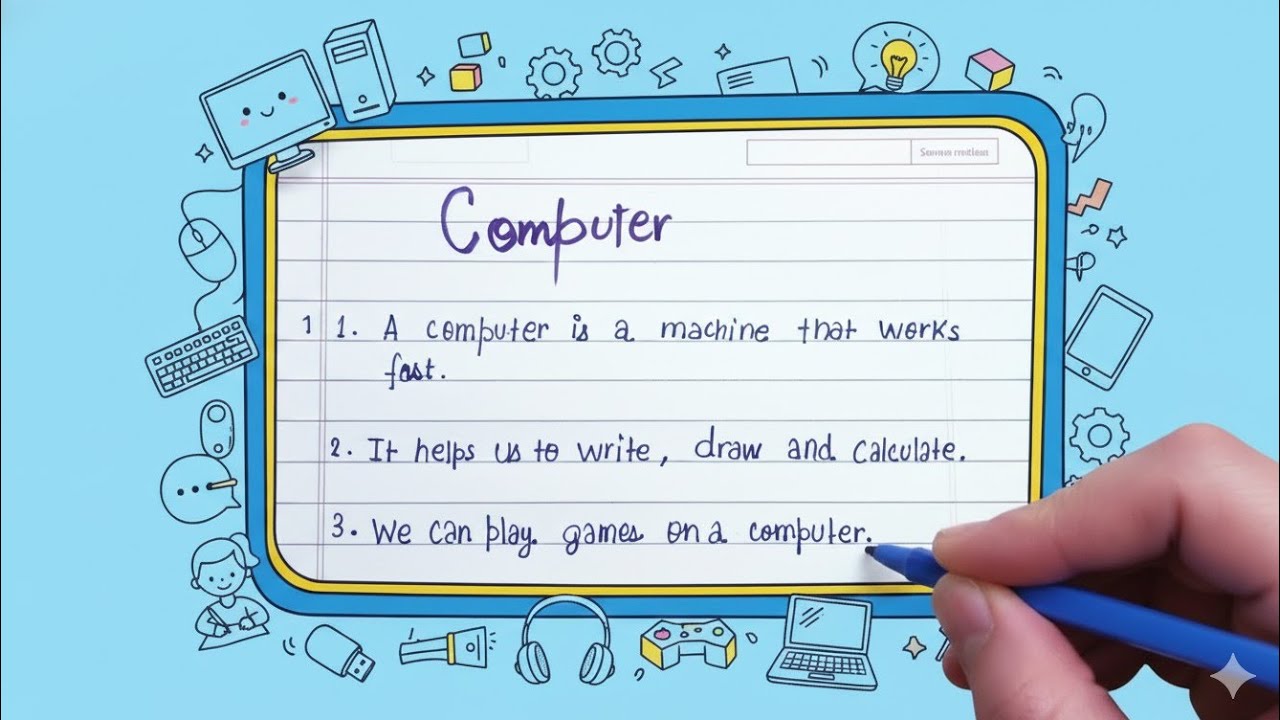 Computer
1 1. A computer is a machine that works
fast.
2. It helps us to write, draw and calculate.
3. We can play. games on a computer.